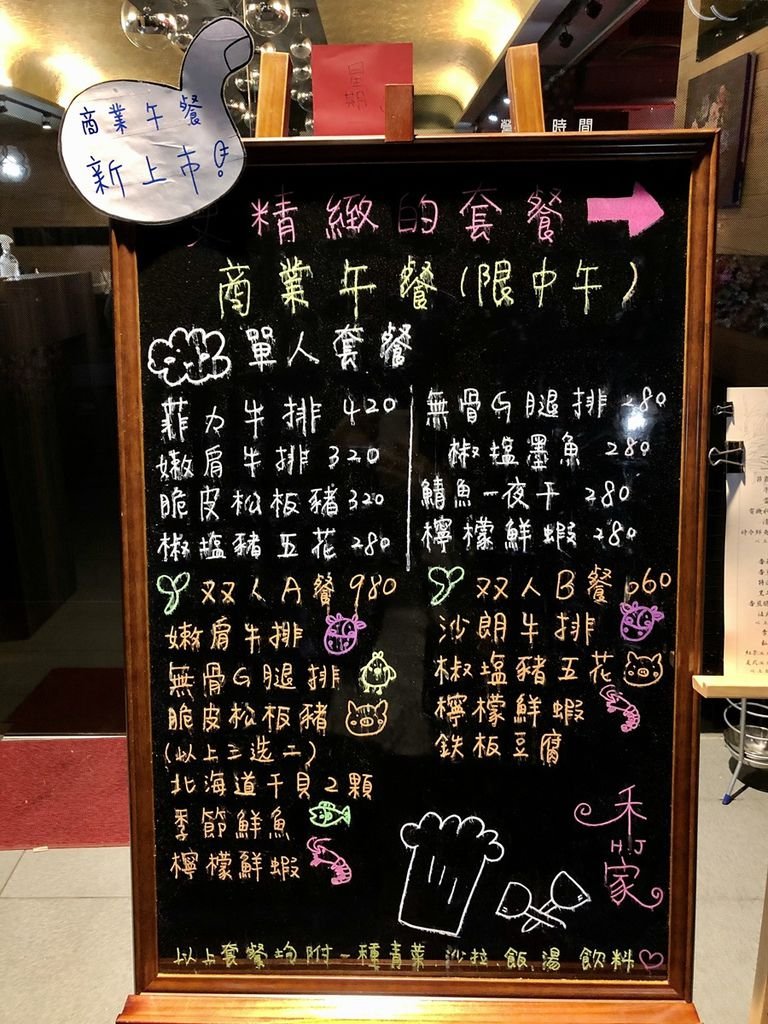 商業午餐
新上市!
星期
時間
精緻的套餐
商業午餐(限中午)
單人套餐
菲力牛排 420
嫩肩牛排 320
脆皮松板豬 320
椒塩豬五花 280
無骨G腿排 280
椒塩墨魚 280
鯖魚一夜干 280
檸檬鮮蝦 280
双人A餐 980
嫩肩牛排
無骨G腿排
脆皮松板豬
(以上三选二)
北海道干貝2顆
季節鮮魚
檸檬鮮蝦
双人B餐 660
沙朗牛排
椒塩豬五花
檸檬鮮蝦
鉄板豆腐
禾
H.J
家
以上套餐均附一種青菜 沙拉.飯.湯 飲料